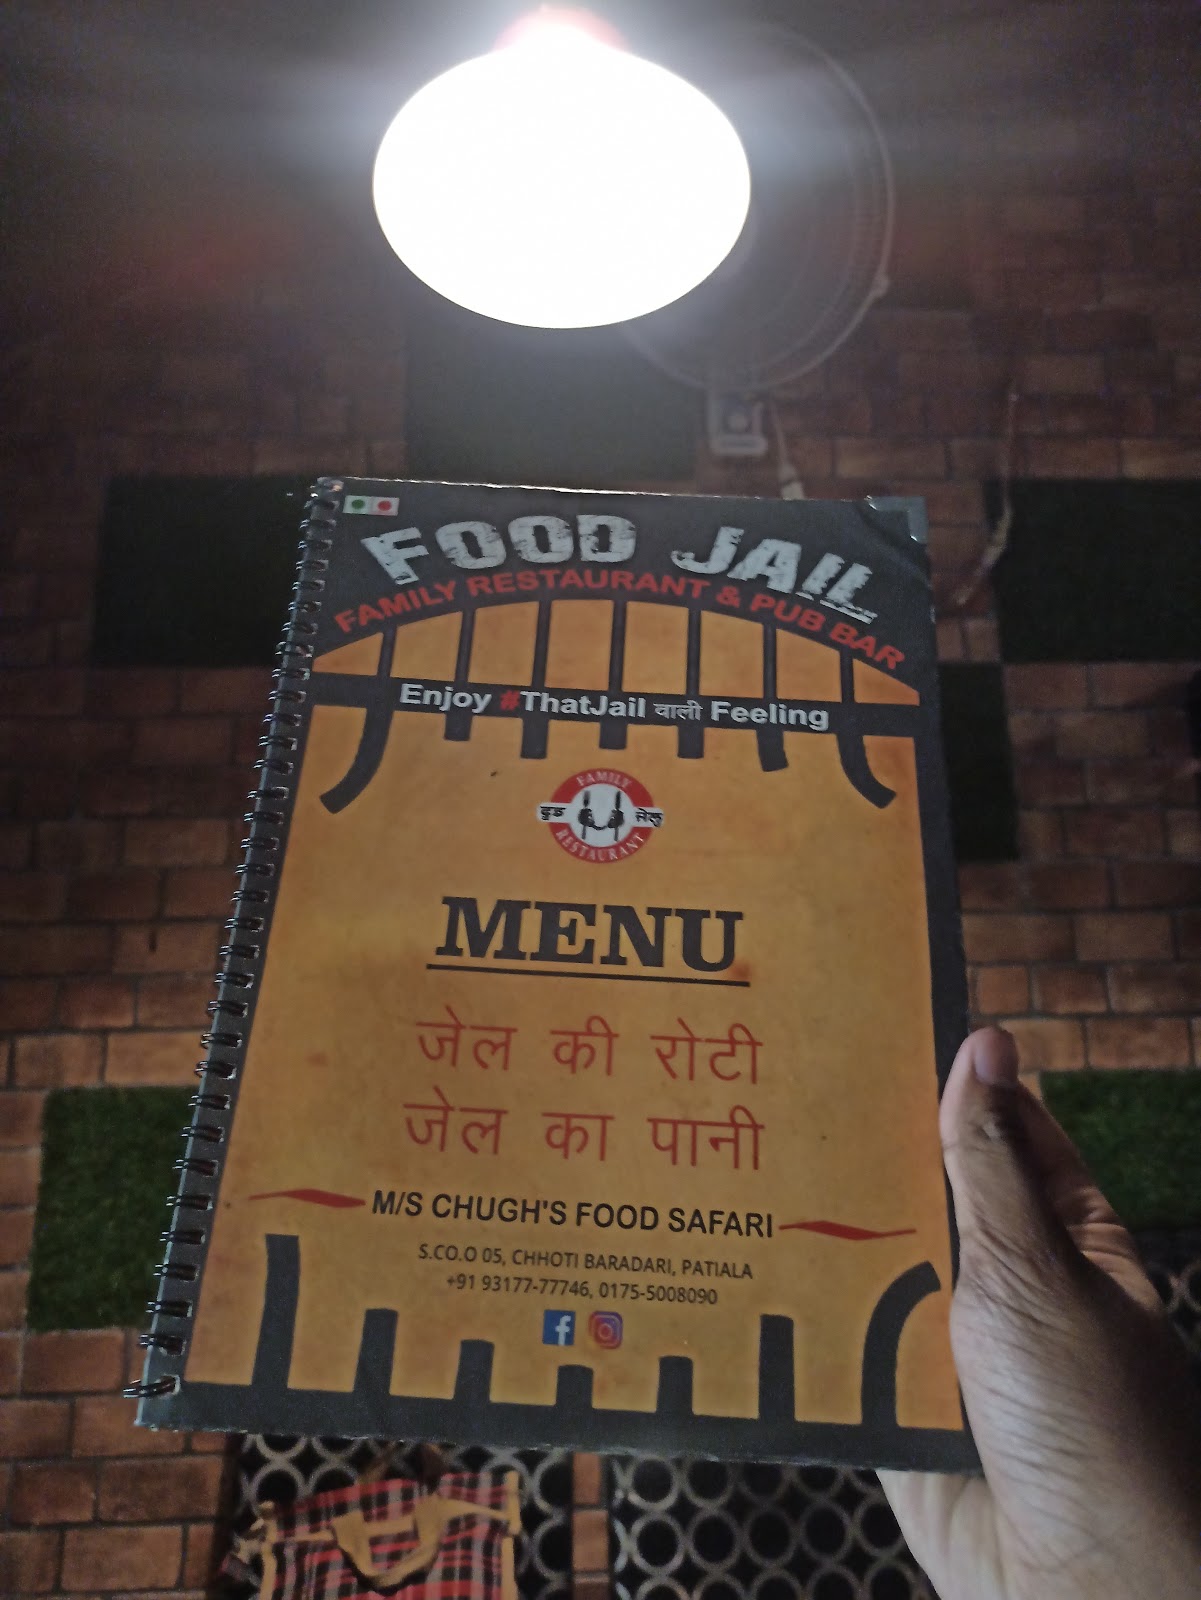 FOOD JAIL
FAMILY RESTAURANT & PUB BAR
Enjoy #ThatJail वाली Feeling
FAMILY
फुड जेल
RESTAURANT
MENU
जेल की रोटी
जेल का पानी
M/S CHUGH'S FOOD SAFARI
S.CO.O 05, CHHOTI BARADARI, PATIALA
+91 93177-77746, 0175-5008090